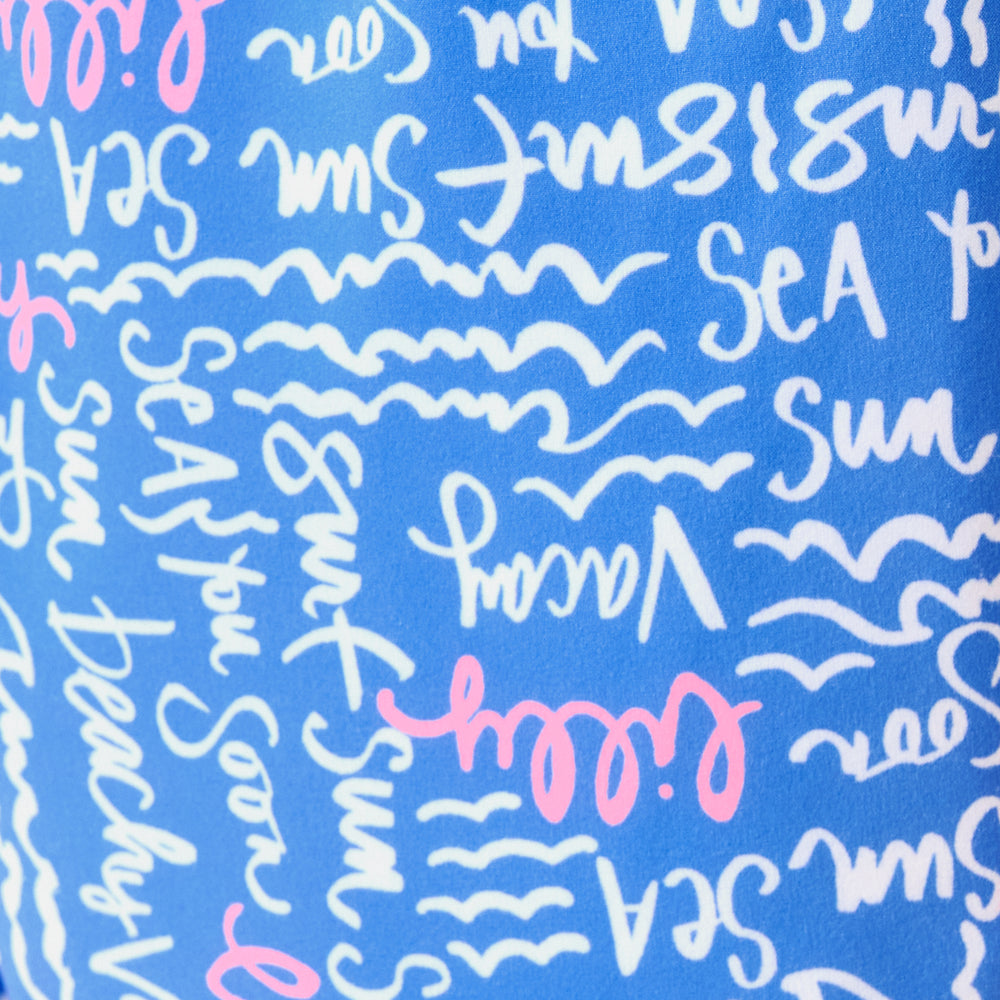 lilly
Soon
You
SeA
SeA
Sun
Surf
Surf
SeA
Yo
Sun
SeA} You Soon
Sun Beachy V
Surf Sun S
Sun
Vacay
lilly
Soon
SeA
Sun